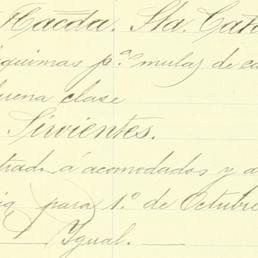 Hacda. Sta. Cat
quimas p.a mulas de ca
buena clase
Sirvientes.
trad. á acomodados y a
para 1.o de Octubre
Igual.